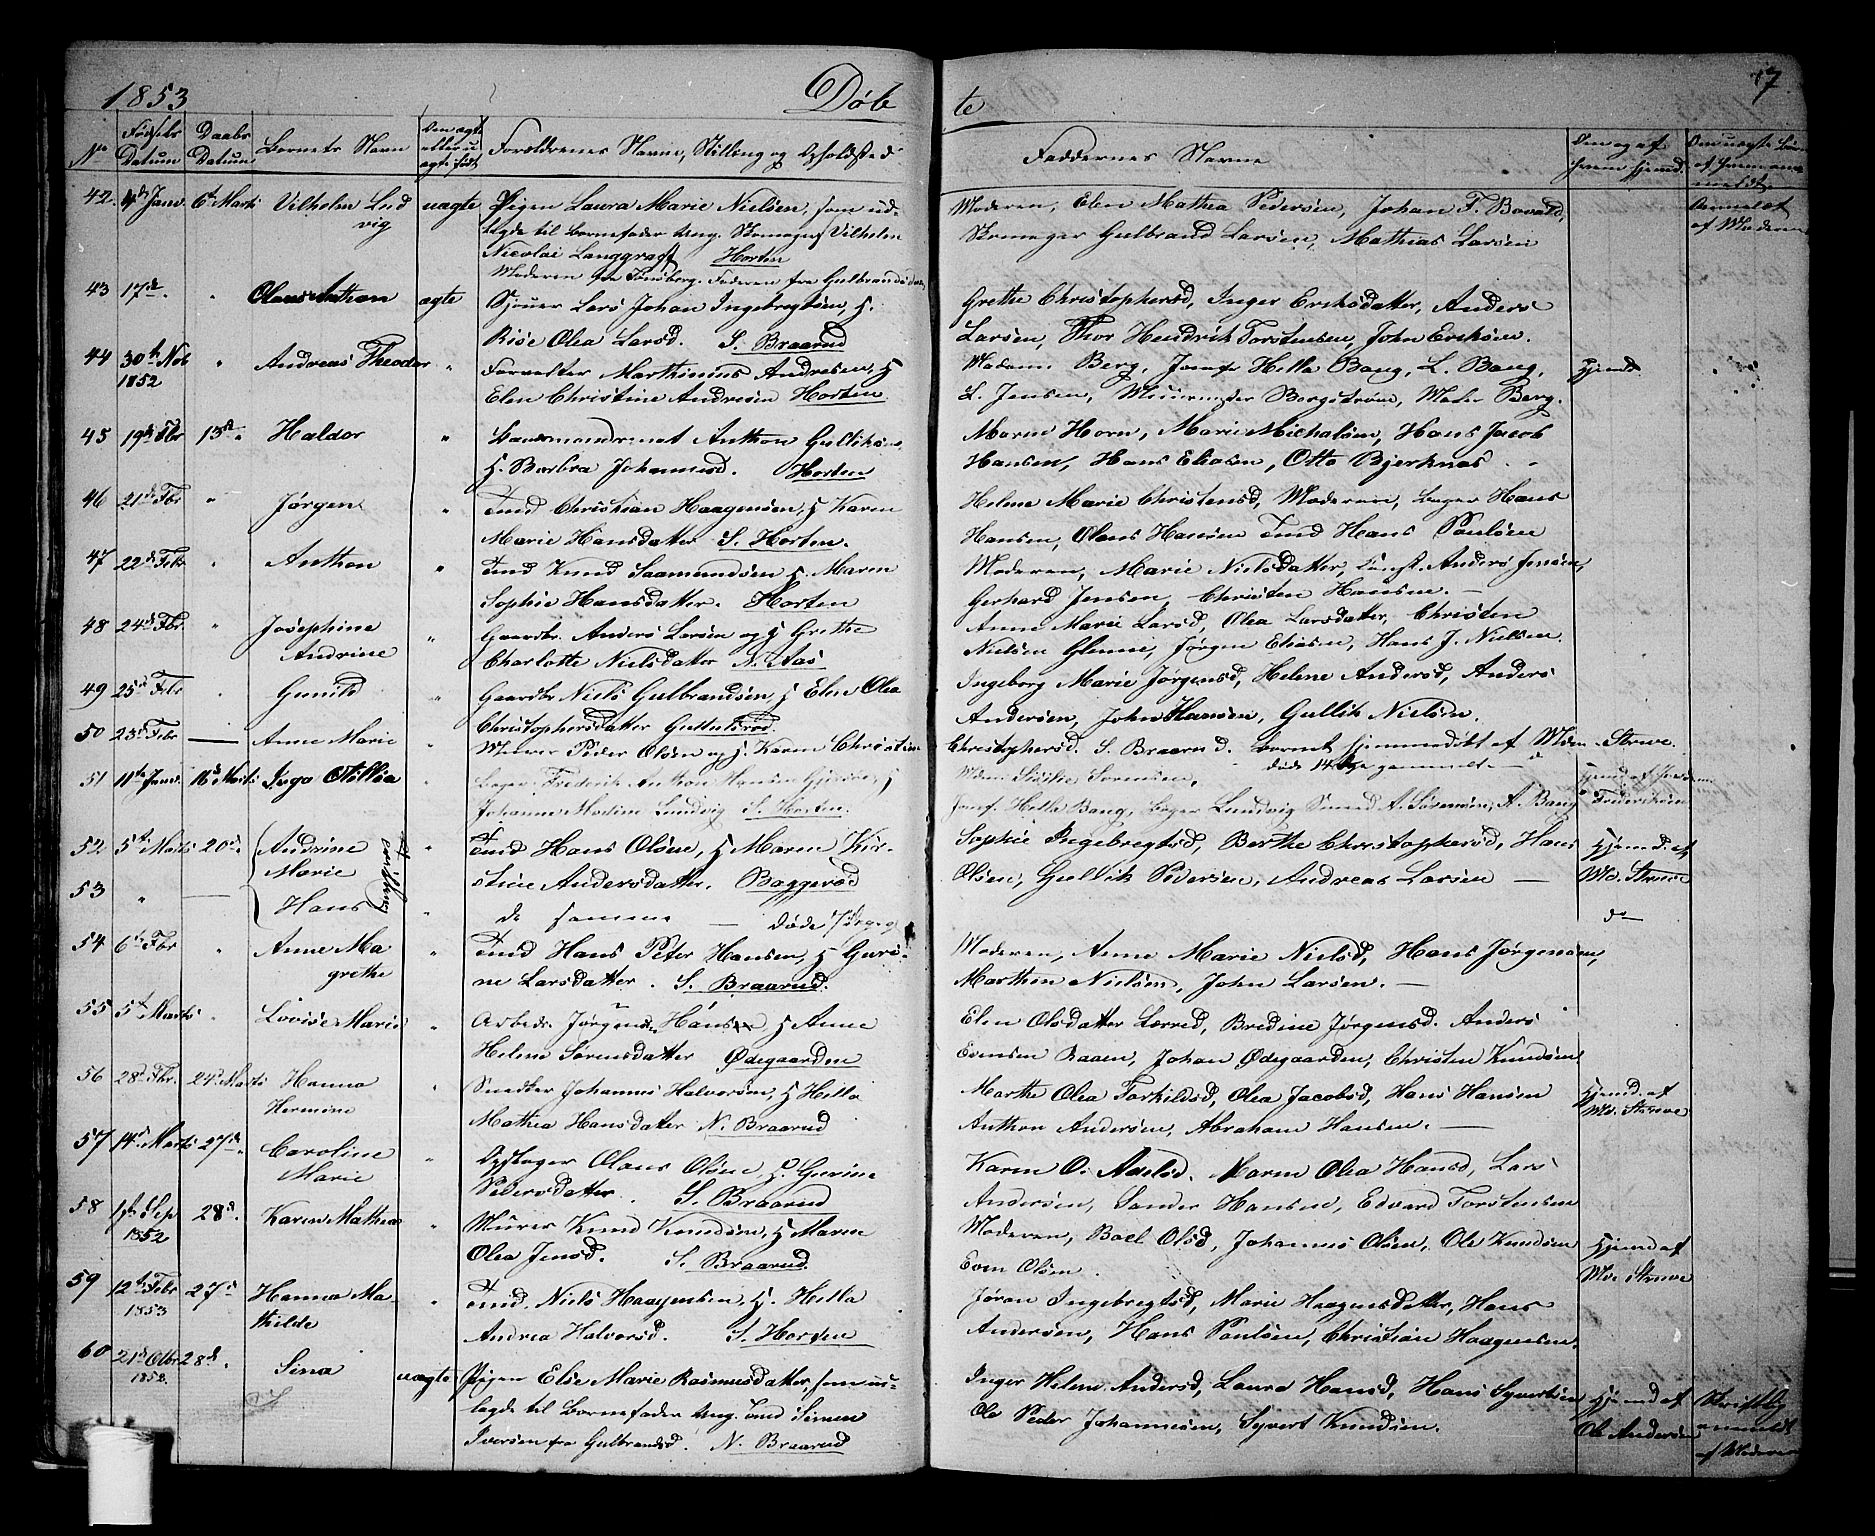 1853 Døbte 17
No Fødsels Datum Daabs Datum Barnets Navn Den ægte eller uægte født Forældrenes Navne, Stilling og Opholdsted
Faddernes Navne
42. 4de Janv. 6te Marts Vilhelm Ludvig uægte Pigen Laura Marie Nielsen, som udlagde til Barnefader Ung. Skomager Vilhelm
Nicolai Langgraff Horten
Moderen fra Tønsberg. Faderen fra Gulbrandsdalen
Moderen, Elen Mathea Pedersen, Johan F. Bovald,
Skomager Gulbrand Larsen, Mathias Larsen
Anmeldt af Moderen
43 17de " Olaus Anthon ægte Sjouer Lars Johan Ingebregtsen, H.
Risø Olea Larsd. S. Braarud
Grethe Christophersd, Inger Eriksdatter, Anders
Larsen, Thor Hendrik Torstensen, John Eriksen.
44 30te Nov 1852 " Andreas Theodor " Forvalter Marthinius Andresen, H
Elen Christine Andresen Horten
Madam Berg, Jomf. Hella Bang, L. Bang,
L. Jensen, Murermester Bergstrøm, Berg.
Hjemd.
45 19de Fbr 13de Haldor " Anthon Gulliksen
H. Barbra Johannesd. Horten
Maren Horn, Marie Michalsen, Hans Jacob
Hansen, Hans Eliasen, Otto Bjerknæs
46 21de Fbr " Jørgen " Tmd Christian Haagensen, H Karen
Marie Hansdatter S. Horten.
Helene Marie Christensd, Moderen, Bager Hans
Hansen, Olaus Hansen Tmd Hans Poulsen
47 22de Febr " Anthon " Tmd Knud Saamundsen H. Maren
Sophie Hansdatter. Horten
Moderen, Marie Nielsdatter, Anders Jensen,
Gerhard Jensen, Christen Hansen.
48 24de Fbr. " Josephine Andrine " Gaardbr. Anders Larsen og H Grethe
Charlotte Nielsdatter N. Aas
Anne Marie Larsd, Olea Larsdatter, Christen
Nielsen Glenne, Jørgen Eliasen, Hans J. Nielsen.
49 25de Febr " Gunild " Gaardbr Niels Gulbrandsen H Elen Olea
Christophersdatter
Ingeborg Marie Jørgensd, Helene Andersd, Anders
Andersen, John Hansen, Gullik Nielsen.
50 23de Febr — Anne Marie " Murer Peder Olsen og H. Karen Christine
Christophersd. S. Braarud. Barnet hjemmedøbt af Mdm Struve.
døde 14 Dage gammelt
51 11te Janv. 16de Marts Inga Otillia " Bager Frederik Anthon Hansen H
Johanne Madine Lundvig S. Horten.
Mdm Sørensen,
Jomf. Hella Bang, Bager Lundvig Smed A. Sørensen, A. Bang
Frederiksen
52 5te Marts 20de Andrine Marie Tvillinger " Tmd Hans Olsen, H Maren Kirstine Andersdatter. Baggerød
Sophie Ingebregtsd, Berthe Christophersd, Hans
Olsen, Gullik Pedersen, Andreas Larsen —
Hjemd. af Md. Struve
53 " — Hans " de samme — døde
do
54 6te Fbr " Anne Magrethe " Tmd Hans Peter Hansen, H Gurine Larsdatter. S. Braarud.
Moderen, Anne Marie Nielsd, Hans Jørgensen,
Marthin Nielsen, John Larsen. —
55 5te Marts " Lovise Marie " Arbeds. Jørgen Hans H Anne
Helene Sørensdatter Ødegaarden
Elen Olsdatter Lerred, Bredine Jørgensd. Anders
Evensen Raaen, Johan Ødegaarden, Christen Knudsen
56 28de Fbr. 24de Marts Hanna Hermine " Snedker Johannes Halvorsen, H Hella
Mathea Hansdatter N. Braarud
Marthe Olea Torkildsd, Olea Jacobsd, Hans Hansen
Anthon Andersen, Abraham Hansen. —
Hjemd. af Md. Struve
57 14de Marts 27de Caroline Marie " Dagleyer Olaus Olsen H. Gurine
Pedersdatter. S. Braarud
Karen O. Axelsd. Maren Olea Hansd, Lars
Andersen, Sander Hansen, Edvard Torstensen
58 1ste Sep 1852 28de. Karen Mathea " Murer Knud Knudsen, H Maren
Olea Jensd. S. Braarud.
Moderen, Boel Olsd, Johannes Olsen, Ole Knudsen
Even Olsen.
Hjemd af Md. Struve
59 12te Febr 1853 27de Hanna Mathilde " Tmd. Niels Haagensen, H. Hella
Andrea Halvorsd. S. Horten
Jøran Ingebregtsd, Marie Haagensdatter, Hans
Andersen, Hans Poulsen, Christian Haagensen.
60 21de Otbr 1852. 28de. Sina uægte Pigen Elise Marie Rasmusdatter, som udlagde til Barnefader Ung. Tmd Simen
Iversen fra Gulbrandsd. N. Braarud
Inger Helene Andersd, Laura Hansd, Hans Syvertsen
Ole Peder Johannesen, Syvert Knudsen.
Hjemd af Ole Andersen
Skriftlig anmeldt af Moderen